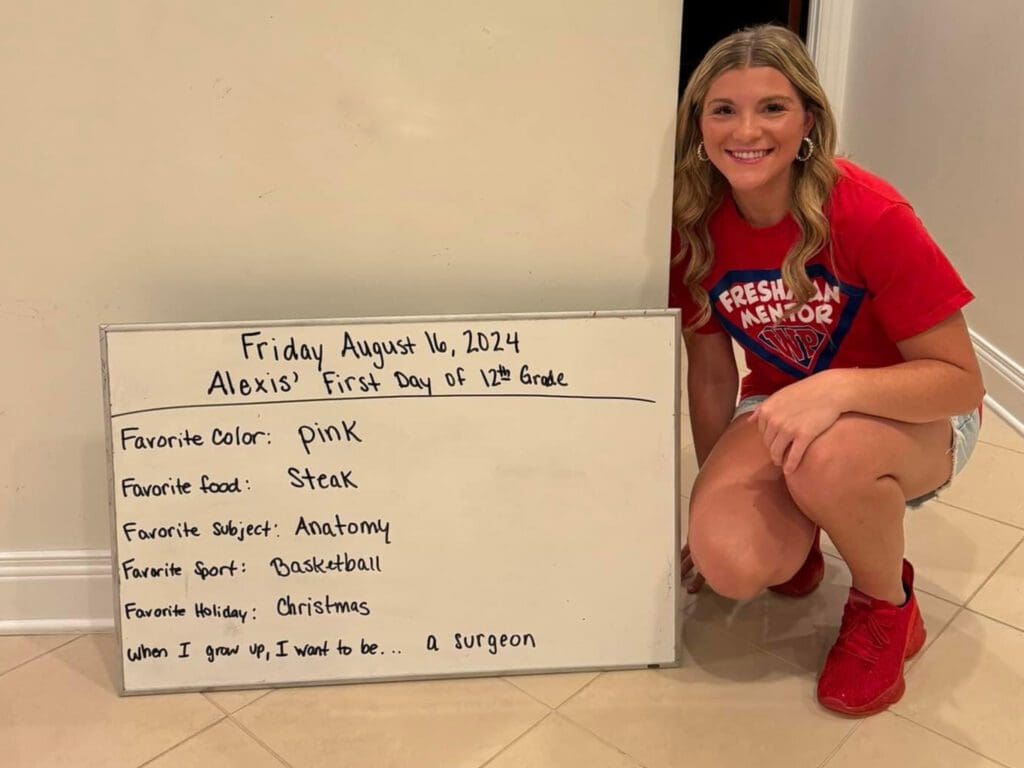 Friday August 16, 2024
Alexis' First Day of 12th Grade
Favorite Color: pink
Favorite food: Steak
Favorite Subject: Anatomy
Favorite Sport: Basketball
Favorite Holiday: Christmas
when I grow up, I want to be... a surgeon
MENTOR
WP